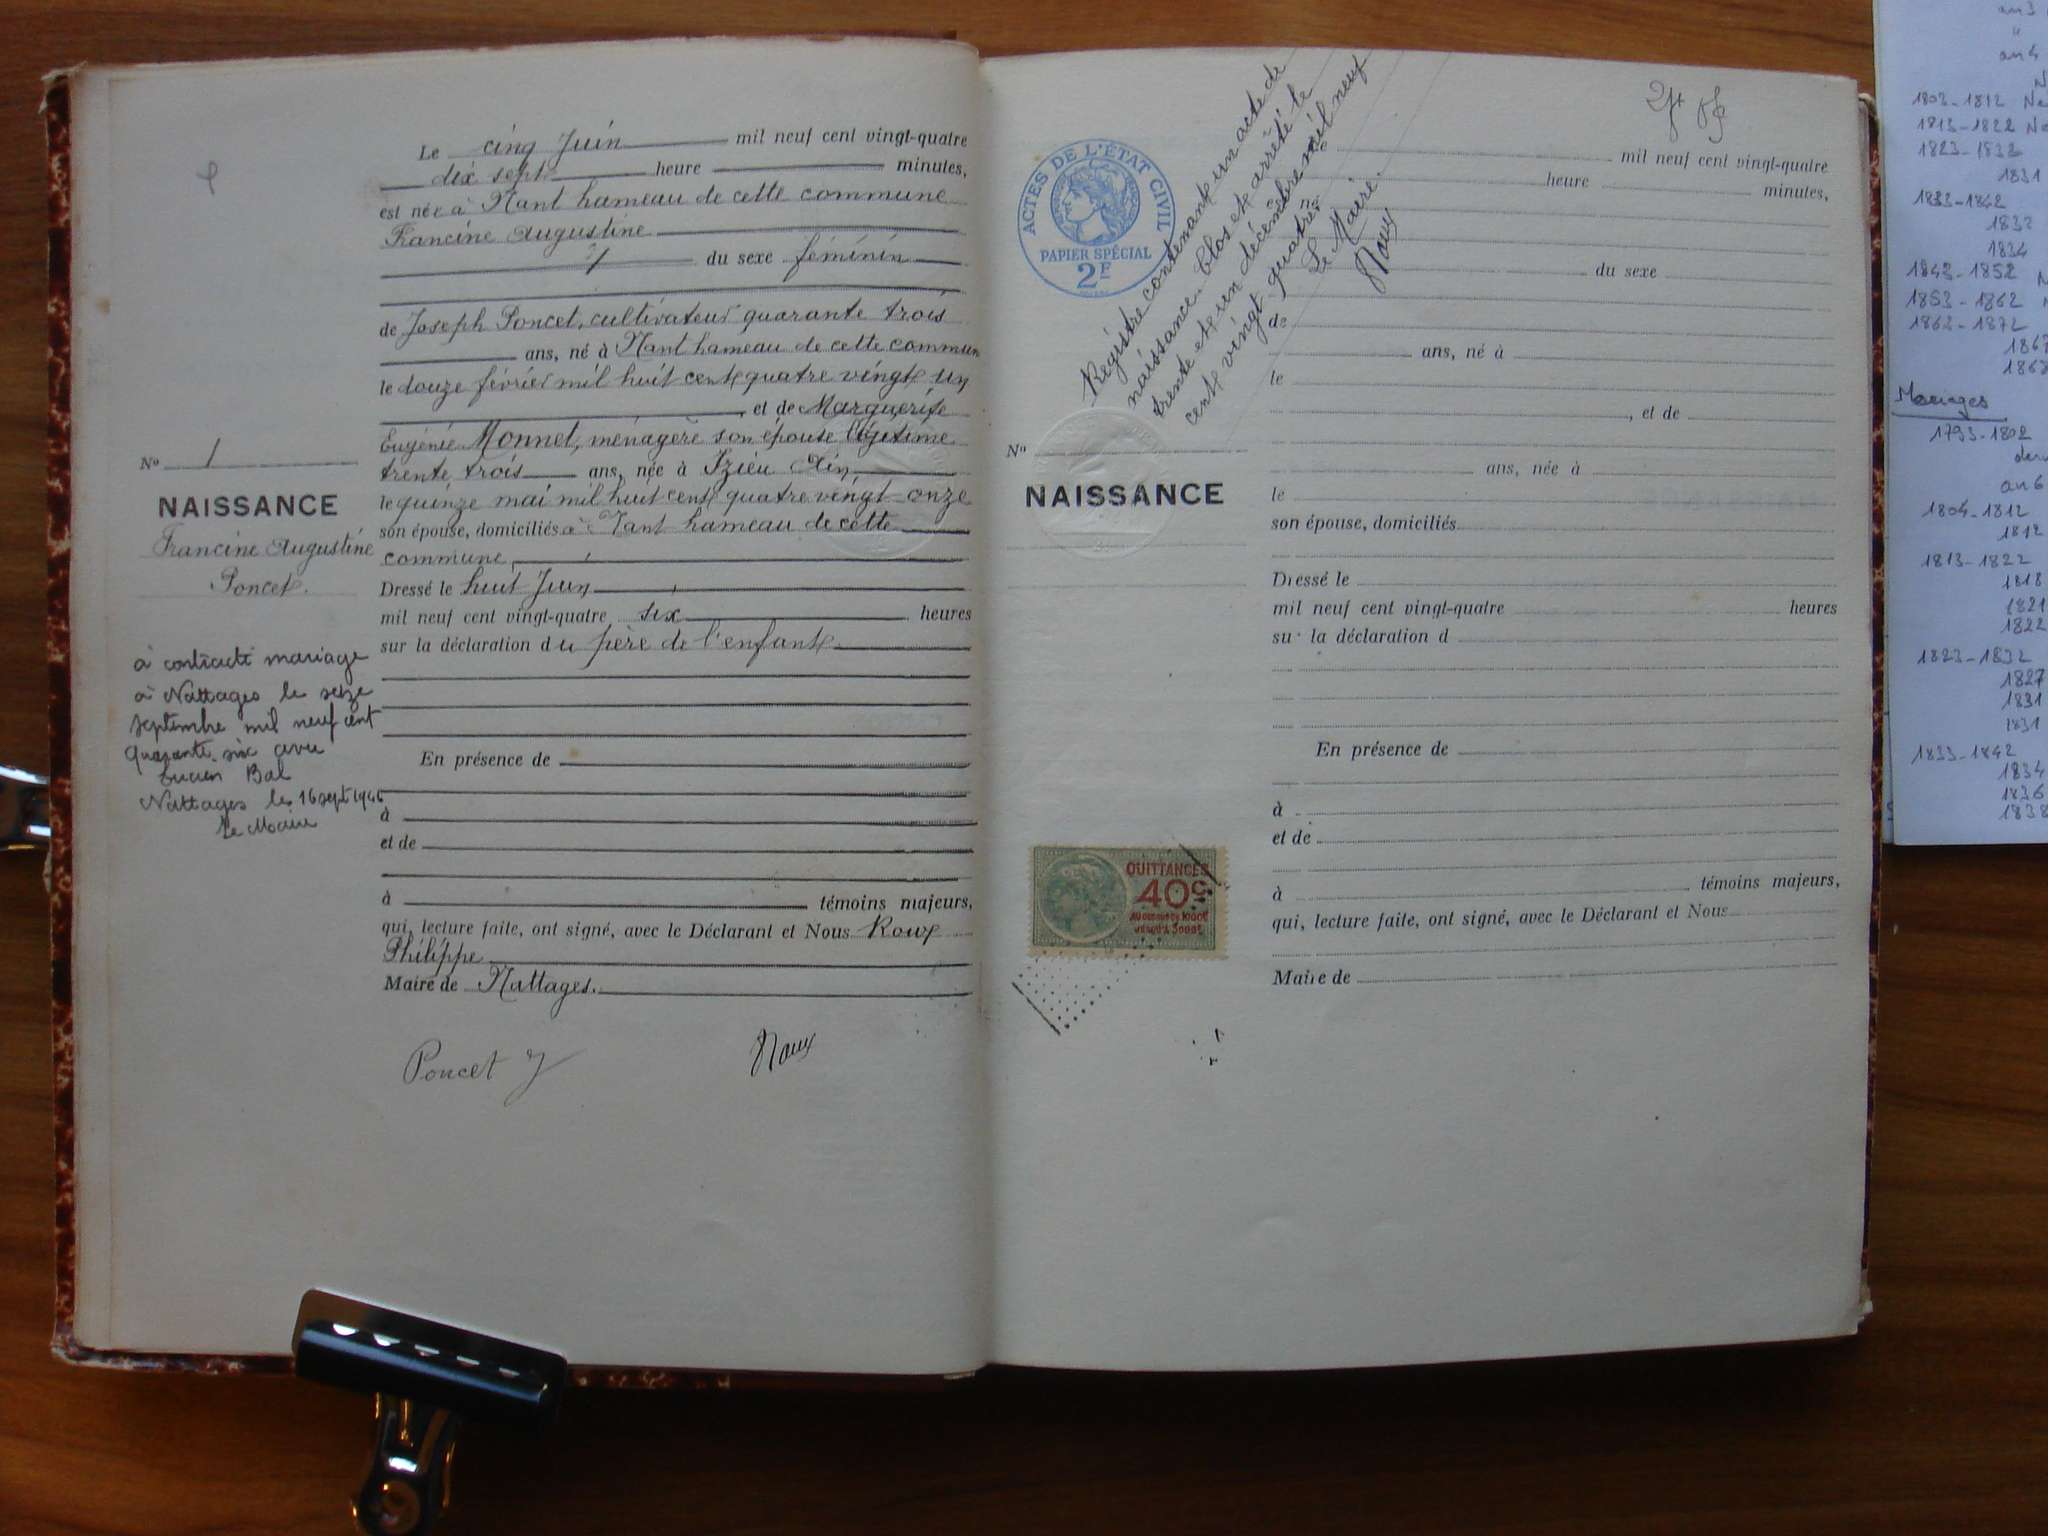 Le cinq Juin mil neuf cent vingt-quatre
dix sept heure minutes,
est née à Nant hameau de cette commune
Francine Augustine
du sexe féminin
de Joseph Poncet, cultivateur quarante trois
ans, né à Nant hameau de cette commune
le douze février mil huit cent quatre vingt un
, et de Marguerite
Eugénie Monnet, ménagère son épouse légitime
trente trois ans, née à Izieu Ain
le quinze mai mil huit cent quatre vingt onze
son épouse, domiciliés à Nant hameau de cette
commune
Dressé le huit Juin
mil neuf cent vingt-quatre six heures
sur la déclaration du père de l'enfant
En présence de
à
et de
à témoins majeurs,
qui, lecture faite, ont signé, avec le Déclarant et Nous Roux
Philippe
Maire de Nattages.
Poncet J
Roux
No 1
NAISSANCE
Francine Augustine
Poncet.
à contracté mariage
à Nattages le seize
septembre mil neuf cent
quarante six avec
Lucien Bal
Nattages le 16 sept 1946
Le Maire
ACTES DE L'ÉTAT CIVIL
PAPIER SPÉCIAL
2F
Registre contenant un acte de
naissance. Clos et arrêté le
trente et un décembre mil neuf
cent vingt quatre.
Le Maire.
Roux
mil neuf cent vingt-quatre
heure minutes,
du sexe
de
ans, né à
le
, et de
ans, née à
le
son épouse, domiciliés
Dressé le
mil neuf cent vingt-quatre heures
sur la déclaration d
En présence de
à
et de
à témoins majeurs,
qui, lecture faite, ont signé, avec le Déclarant et Nous
Maire de
No
NAISSANCE
QUITTANCES
40c
an 3
an 4
1803-1812
1813-1822
1823-1832
1831
1833-1842
1832
1834
1843-1852
1853-1862
1863-1872
1867
1868
Mariages
1793-1802
an 6
1804-1812
1812
1813-1822
1818
1821
1822
1823-1832
1827
1831
1831
1833-1842
1834
1836
1838